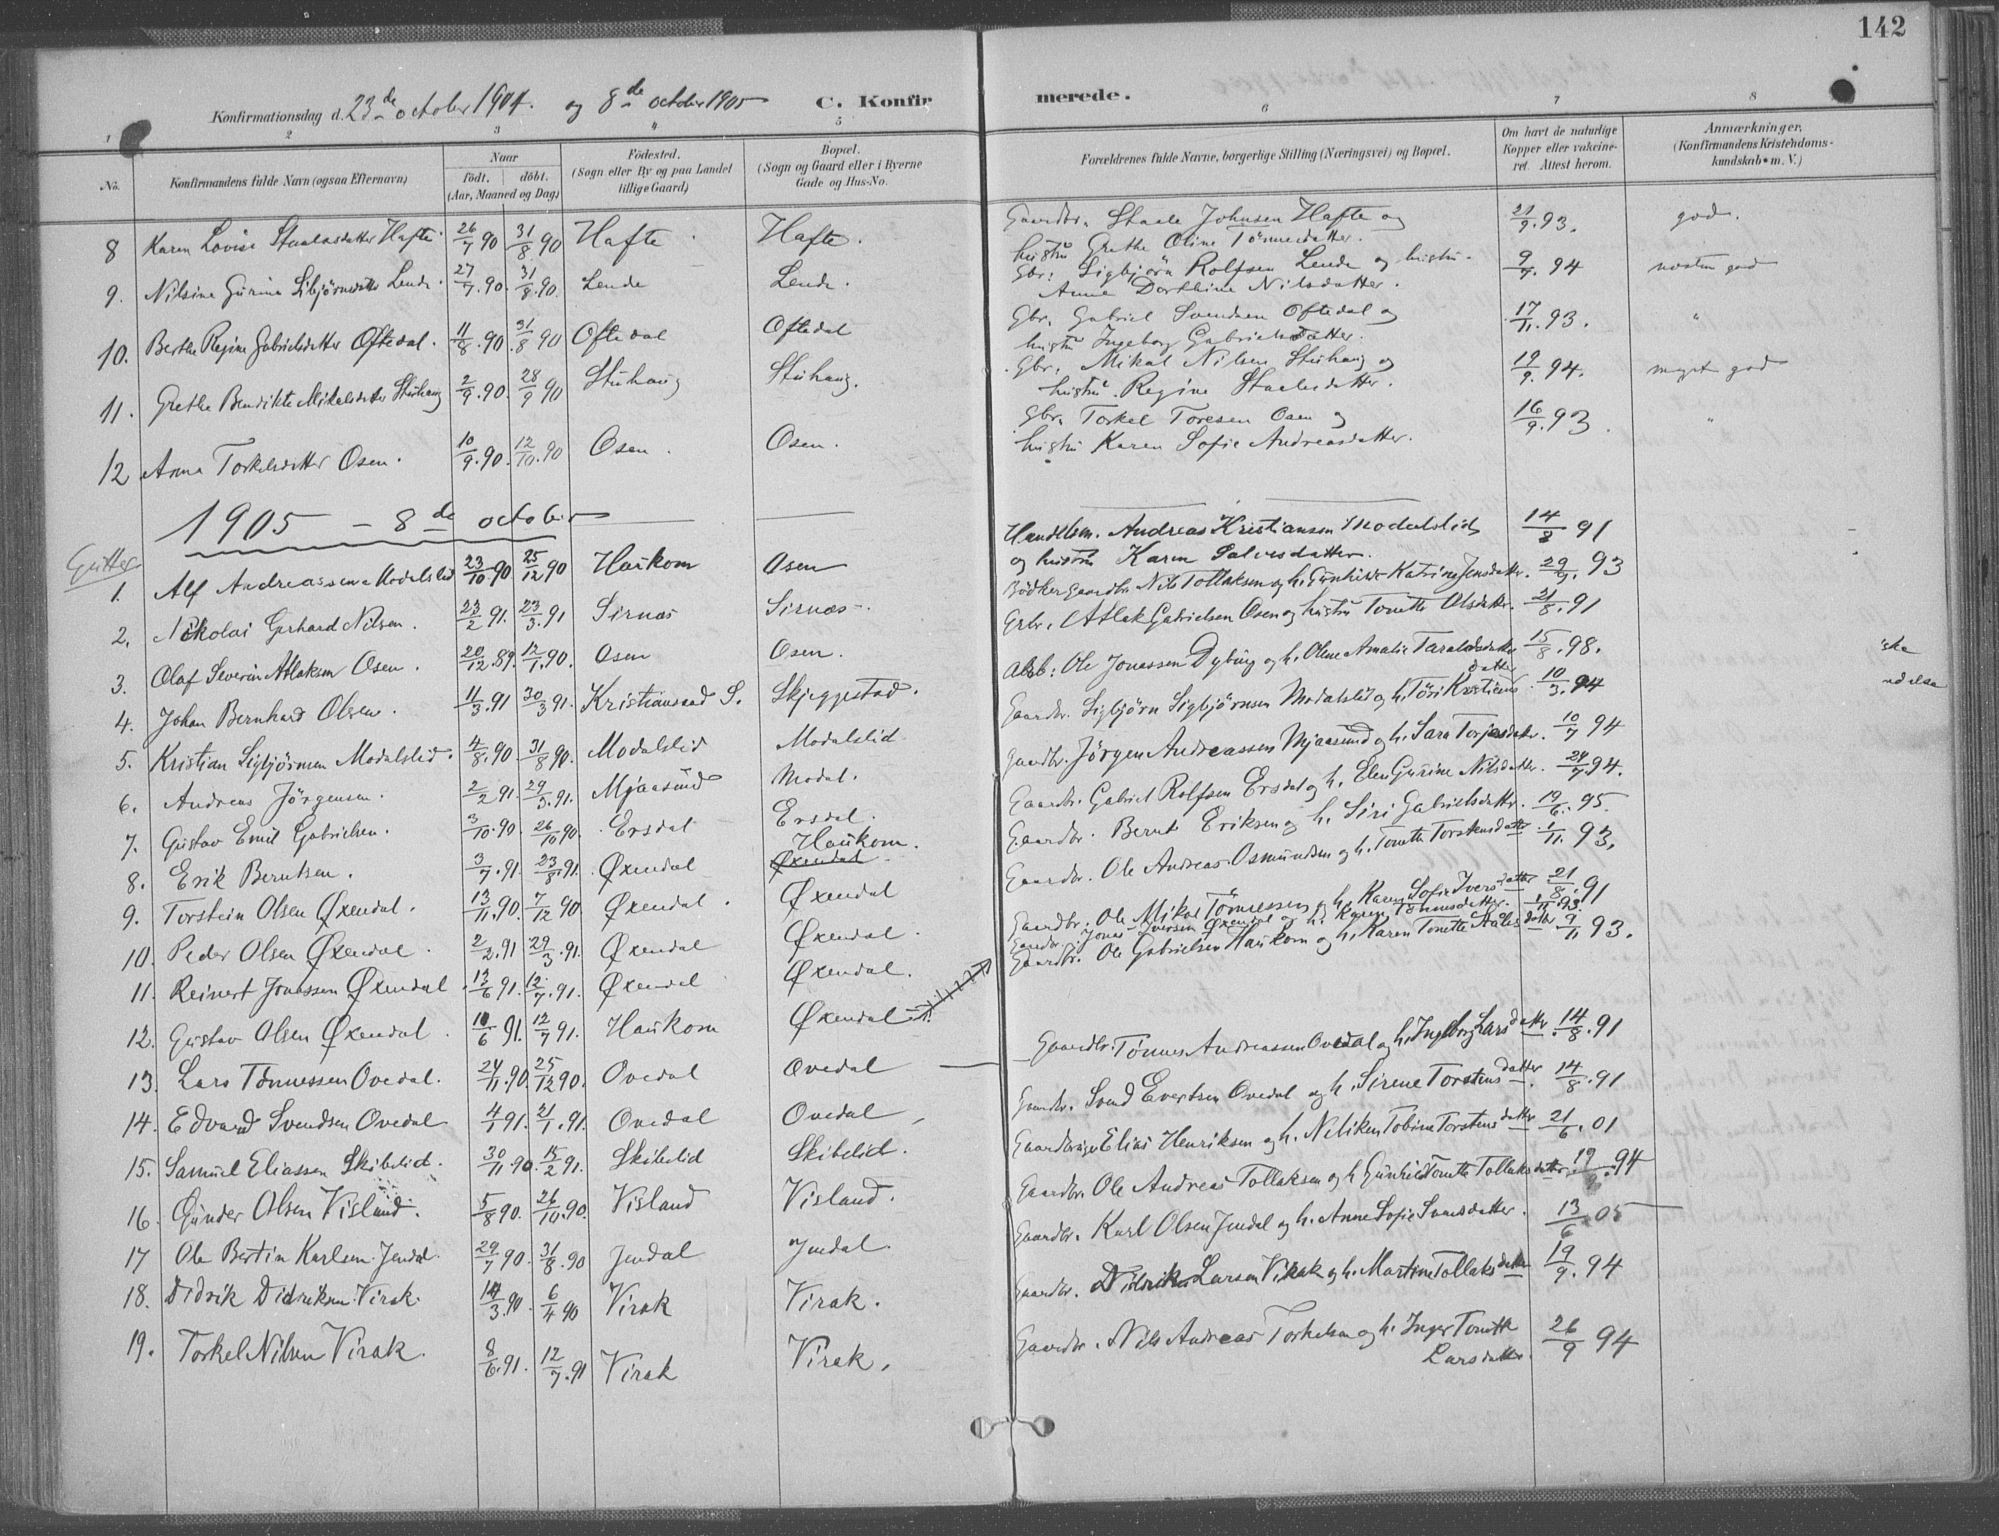 142
Konfirmationsdag d. 23de october 1904. og 8de october 1905 C. Konfirmerede.
1 2 3 4 5 6 7 8
No. Konfirmandens fulde Navn (ogsaa Efternavn) Naar födt. döbt. (Aar, Maaned og Dag) Födested. (Sogn eller By og paa Landet tillige Gaard) Bopæl. (Sogn og Gaard eller i Byerne Gade og Hus-No. Forældrenes fulde Navne, borgerlige Stilling (Næringsvei) og Bopæl. Om havt de naturlige Kopper eller vakcineret. Attest herom. Anmærkninger. (Konfirmandens Kristendomskundskab m. V.)
8 Karen Lovise Staalesdatter Hafte. 26/7 90 31/8 90 Hafte Hafte. Gaardbr. Staale Johnsen Hafte og hustru Grethe Oline Tönnesdatter. 21/9. 93. god.
9. Nilsine Gurine Sibjörnsdtr Lende. 27/7. 90. 31/8. 90. Lende Lende. Gbr. Sigbjörn Rolfsen Lende og hustru Anne Dorthine Nilsdatter. 9/7. 94 næsten god
10. Berthe Regine Gabrielsdatter Oftedal. 11/8. 90. 31/8 90 Oftedal Oftedal Gbr. Gabriel Svendsen Oftedal og hustru Ingeborg Gabrielsdatter. 17/11. 93. "
11. Grethe Bendikte Mikalsdatter Stuhaug 2/9. 90. 28/9 90 Stuhaug Stuhaug. Gbr. Mikal Nilsen Stuhaug og hustru Regine Staalesdatter. 19/9. 94. meget god
12 Anna Torkelsdatter Osen. 10/9. 90. 12/10. 90 Osen. Osen. Gbr. Torkel Toresen Osen og hustru Karen Sofie Andreasdatter. 16/9. 93. "
1905 - 8de october
Gutter
1. Alf Andreassen Modalslid 23/10 90 25/12 90 Haukom Osen Handelsm. Andreas Kristiansen Modalslid og hustru Karen Salvesdatter. 14/8 91
2. Nikolai Gerhard Nilsen. 23/2 91. 23/3. 91 Sirnæs Sirnæs. Bödker Gaardbr. Nils Tollaksen og h. Gunhilde Katrine Jensdatter. 29/9. 93
3. Olaf Severin Atlaksen Osen. 20/12. 89. 12/1. 90. Osen Osen. Grbr. Atlak Gabrielsen Osen og hustru Tonette Olsdatter. 21/8. 91
4. Johan Bernhard Olsen. 11/3. 91 30/3 91. Kristianssad S. Skjeggestad. Ole Jonassen Dybing og h. Oline Amalie Taraldsdatter 15/8. 98.
5. Kristian Sigbjörnsen Modalslid. 4/8. 90 31/8 90. Modalslid Modalslid Gaardbr. Sigbjörn Sigbjörnsen Modalslid og h. Tösi Kristiansdatter. 10/3. 94
6. Andreas Jörgensen. 2/2 91. 29/3. 91. Mjaasund Modal. Gaardbr. Jörgen Andreassen Mjaasund og h. Sara Torjersdatter. 10/7 94
7. Gustav Emil Gabrielsen. 3/10. 90. 26/10 90. Ersdal Ersdal. Gaardbr. Gabriel Rolfsen Ersdal og h. Elen Gurine Nilsdatter. 24/7. 94.
8. Erik Berntsen. 3/7. 91. 23/8. 91. Øxendal Haukom. Øxendal Gaardbr. Bernt Eriksen og h. Siri Gabrielsdatter. 19/6. 95.
9. Torstein Olsen Øxendal. 13/11. 90. 7/12 90. Øxendal. Øxendal Gaardbr. Ole Andreas Osmundsen og h. Tonette Torstensdatter 1/11. 93.
10. Peder Olsen Øxendal 2/2. 91 29/3. 91. Øxendal Øxendal. Gaardbr. Ole Mikal Tönnessen og h. Karen Sofie Iversdatter 21/8. 91
11. Reinert Jonassen Øxendal 13/6 91. 12/7. 91. Øxendal Øxendal. Gaardbr. Jonas Iversen Øxendal og h. Karen Tönnesdatter. 1/11 93.
12. Gustav Olsen Øxendal. 10/6 91. 12/7 91. Haukom Øxendal Gaardbr. Ole Gabrielsen Haukom og h. Karen Tonette Aalesdatter 9/11 93.
13. Lars Tönnessen Ovedal. 24/11. 90. 25/12 90. Ovedal Ovedal Gaardbr. Tönnes Andreassen Ovedal og h. Ingeborg Larsdatter. 14/8. 91
14. Edvard Svendsen Ovedal 4/1 91. 21/1. 91. Ovedal Ovedal Gaardbr. Svend Evertsen Ovedal og h. Sirene Torstensdatter. 14/8. 91
15. Samuel Eliassen Skibelid. 30/11. 90. 15/2 91. Skibelid Skibelid. Elias Henriksen og h. Neliken Tobine Torstensdatter 21/6. 01
16. Gunder Olsen Visland. 5/8 90. 26/10. 90. Visland Visland. Gaardbr. Ole Andreas Tollaksen og h Gunhild Tonette Tollaksdatter. 19/9. 94
17 Ole Bertin Karlsen Jendal. 29/7 90. 31/8. 90 Jendal Jendal. Gaardbr. Karl Olsen Jendal og h. Anne Sofie Svensdatter. 13/6 05
18. Didrik Didriksen Virak. 14/3. 90. 6/4 90 Virak Virak. Gaardbr. Didrik Larsen Virak og h. Martine Tollaksdatter 19/9. 94
19. Torkel Nilsen Virak. 8/6. 91. 12/7. 91 Virak Virak. Gaardbr. Nils Andreas Torkelsen og h. Inger Tonette Larsdatter. 26/9 94